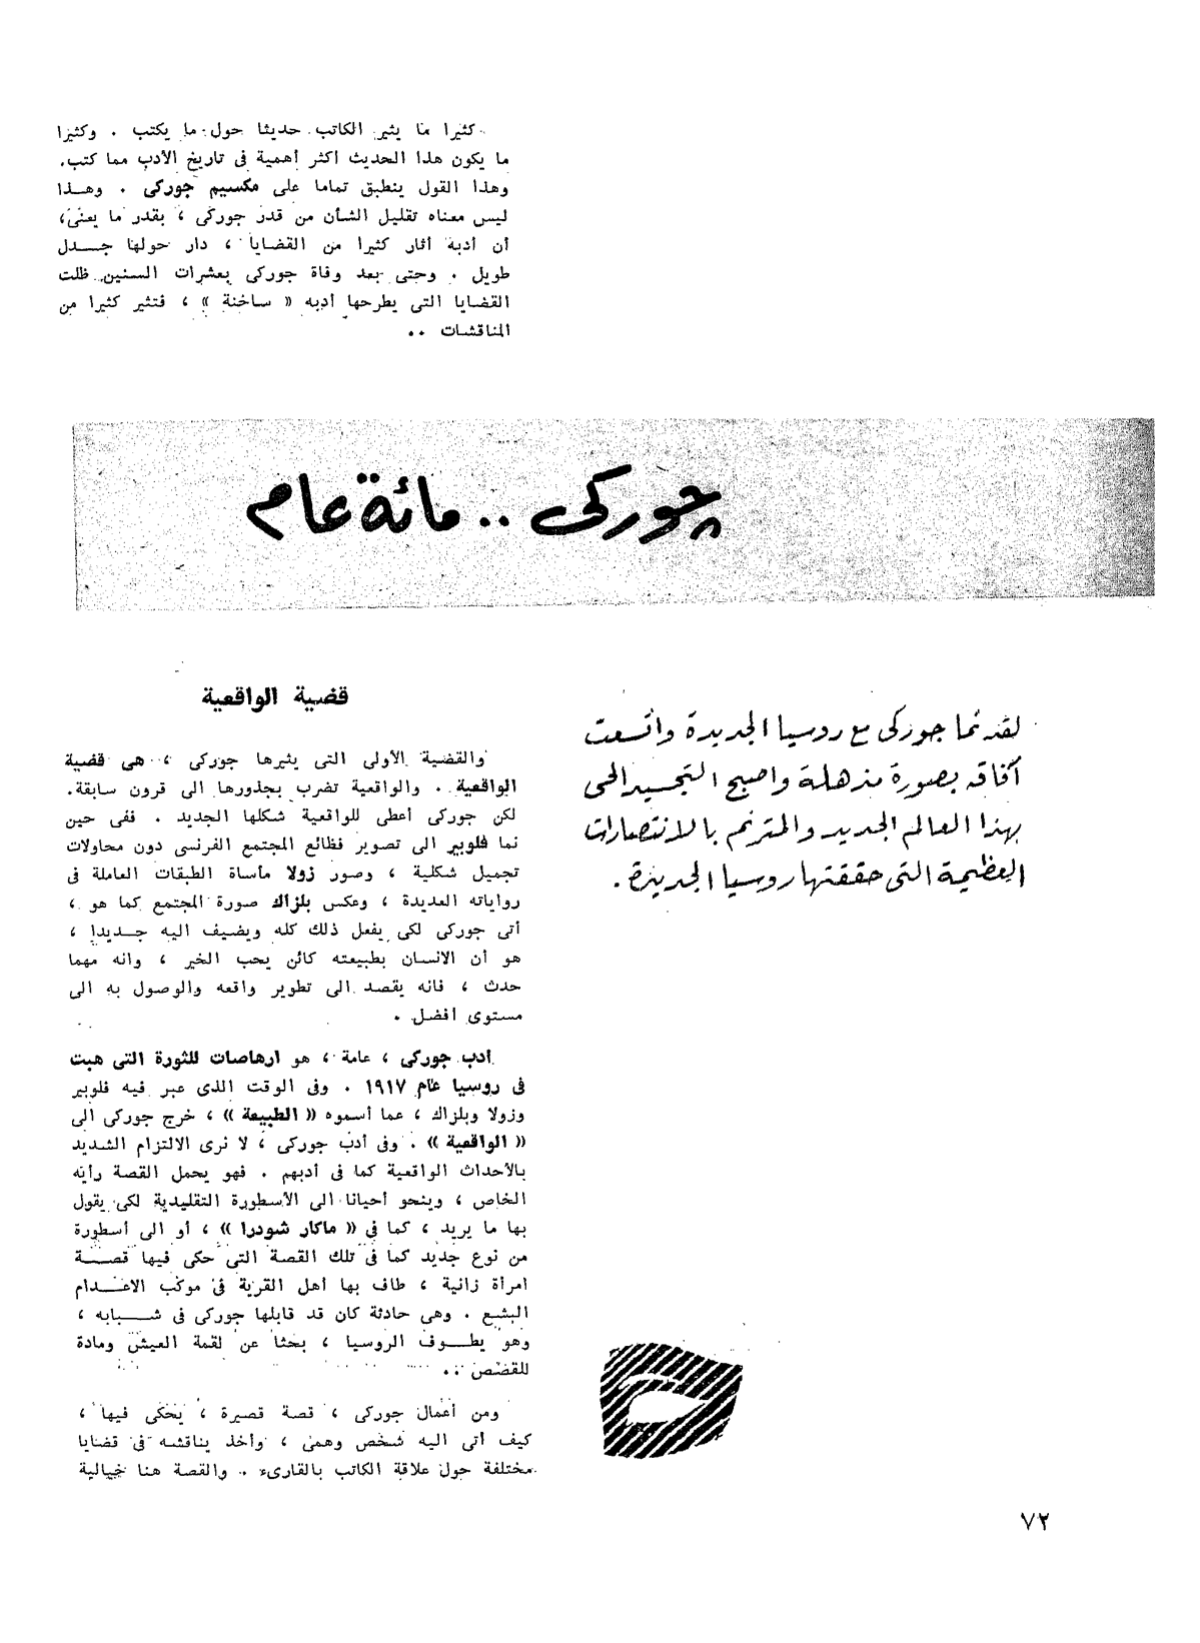 كثيرا ما يثير الكاتب حديثا حول ما يكتب . وكثيرا
ما يكون هذا الحديث اكثر أهمية فى تاريخ الأدب مما كتب.
وهذا القول ينطبق تماما على مكسيم جوركى . وهـذا
ليس معناه تقليل الشأن من قدر جوركى ، بقدر ما يعنى،
أن أدبه أثار كثيرا من القضايا ، دار حولها جـدل
طويل . وحتى بعد وفاة جوركى بعشرات السنين ظلت
القضايا التى يطرحها أدبه « ساخنة » ، فتثير كثيرا من
المناقشات ..
چوركى .. مائة عام
لقد نما جوركى مع روسيا الجديدة واتسعت
آفاقه بصورة مذهلة واصبح التجسيد الحى
لهذا العالم الجديد والمترنم بالانتصارات
العظيمة التى حققتها روسيا الجديدة .
قضية الواقعية
والقضية الأولى التى يثيرها جوركى ، هى قضية
الواقعية . والواقعية تضرب بجذورها الى قرون سابقة.
لكن جوركى أعطى للواقعية شكلها الجديد . ففى حين
نما فلوبير الى تصوير فظائع المجتمع الفرنسى دون محاولات
تجميل شكلية ، وصور زولا مأساة الطبقات العاملة فى
رواياته العديدة ، وعكس بلزاك صورة المجتمع كما هو ،
أتى جوركى لكى يفعل ذلك كله ويضيف اليه جـديدا ،
هو أن الانسان بطبيعته كائن يحب الخير ، وانه مهما
حدث ، فانه يقصد الى تطوير واقعه والوصول به الى
مستوى افضل .
أدب جوركى ، عامة ، هو ارهاصات للثورة التى هبت
فى روسيا عام ١٩١٧ . وفى الوقت الذى عبر فيه فلوبير
وزولا وبلزاك ، عما أسموه « الطبيعة » ، خرج جوركى الى
« الواقعية » . وفى أدب جوركى ، لا نرى الالتزام الشديد
بالأحداث الواقعية كما فى أدبهم . فهو يحمل القصة رأيه
الخاص ، وينحو أحيانا الى الأسطورة التقليدية لكى يقول
بها ما يريد ، كما فى « ماكار شودرا » ، أو الى أسطورة
من نوع جديد كما فى تلك القصة التى حكى فيها قصـة
امرأة زانية ، طاف بها أهل القرية فى موكب الاعـدام
البشع . وهى حادثة كان قد قابلها جوركى فى شـبابه ،
وهو يطـوف الروسيا ، بحثا عن لقمة العيش ومادة
للقصص ..
ومن أعمال جوركى ، قصة قصيرة ، يحكى فيها ،
كيف أتى اليه شخص وهمى ، وأخذ يناقشه فى قضايا
مختلفة حول علاقة الكاتب بالقارىء . والقصة هنا خيالية
٧٢